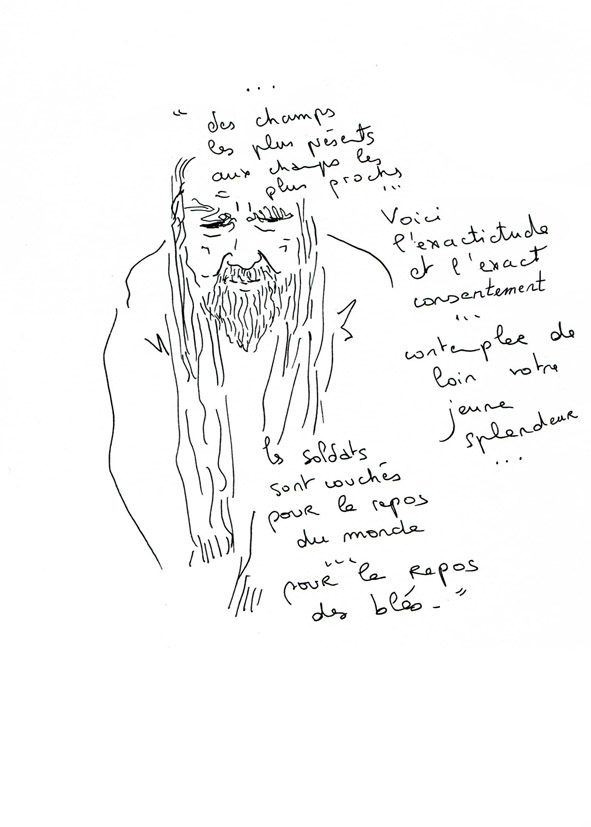 ...
" des champs
les plus présents
aux champs les
plus prochs
...
Voici
l'exactitude
et l'exact
consentement
...
contemplee de
loin votre
jeune
splendeur
...
les soldats
sont couchés
pour le repos
du monde
...
pour le repos
des blés - "